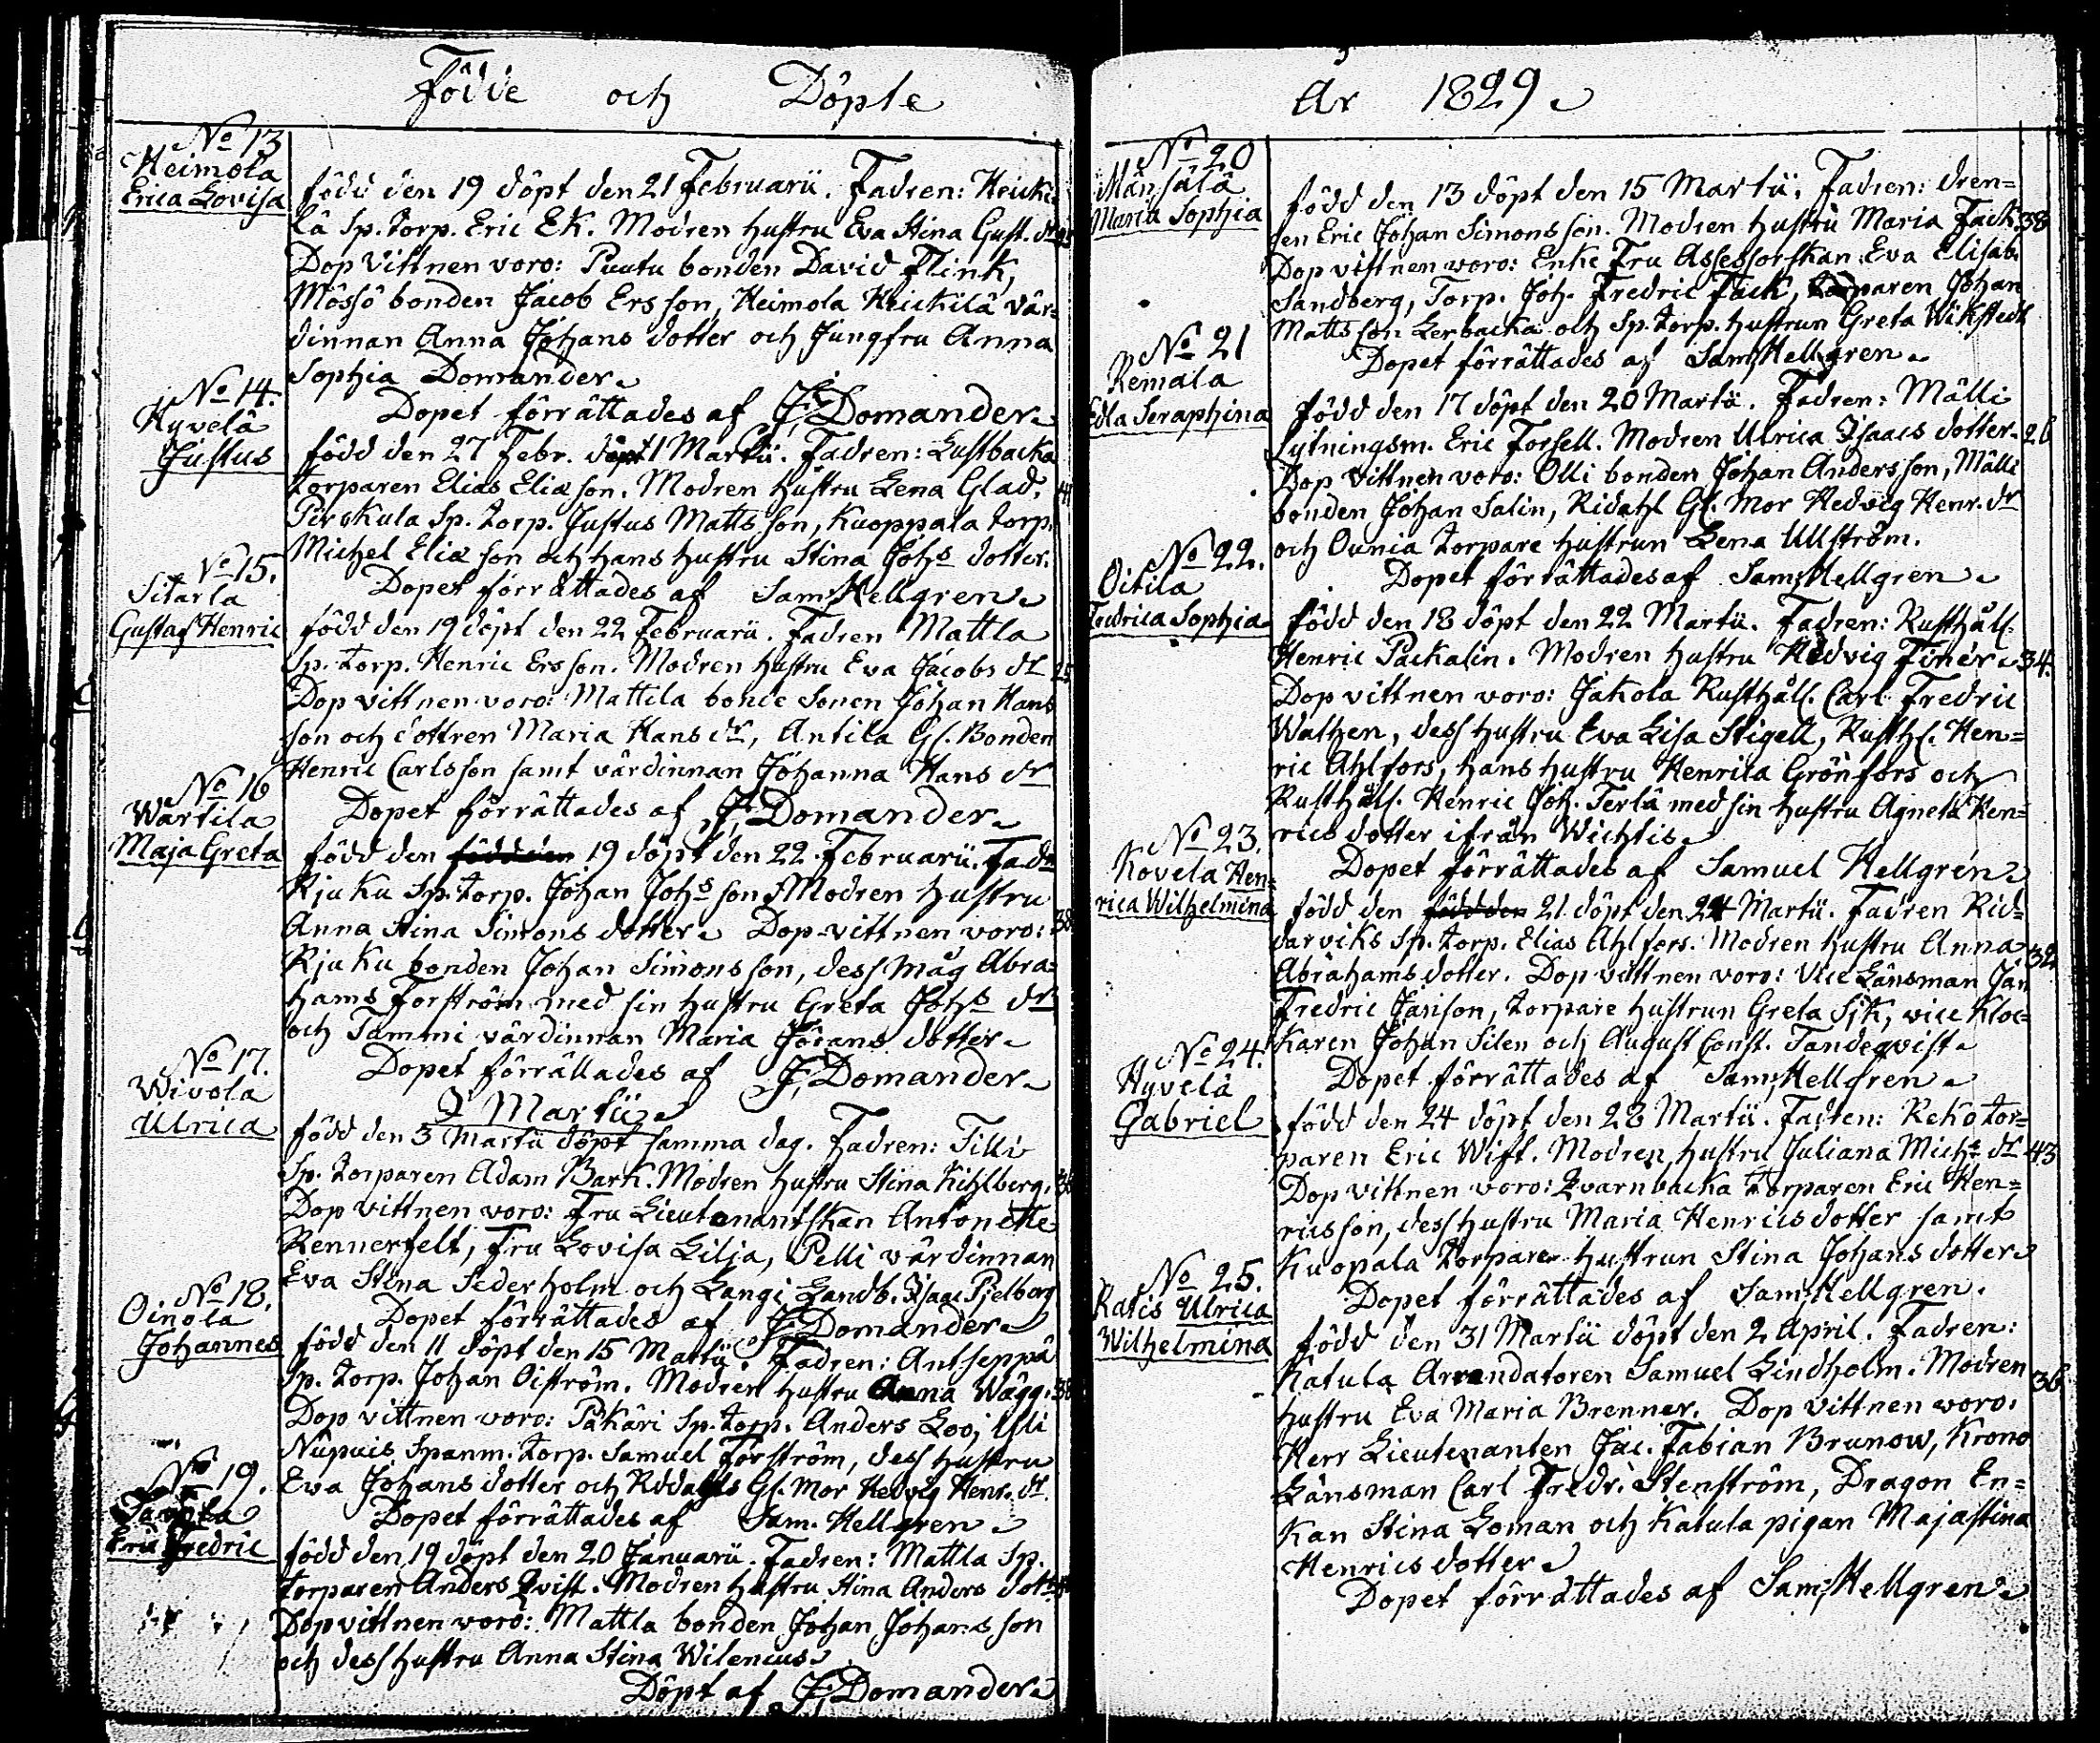 Födde och Döpte
No 13
Heimola
Erica Lovisa
född den 19 döpt den 21 Februarii. Fadren: Heicki-
lä Sp. torp. Eric Ek. Modren hustru Eva Stina Gust. dr
Dop Vittnen voro: Puutu bonden David Flink,
Mössö bonden Jacob Ersson, Heimola Heickilä vär-
dinnan Anna Johans dotter och Jungfru Anna
Sophia Domander.
Dopet förrättades af J. Domander
No 14.
Hyvelä
Justus
född den 27 Febr. döpt 1 Martii. Fadren: Lustbacka
torparen Elias Eliæ son. Modren hustru Lena Glad.
Perskula Sp. torp. Justus Matts son, Kuoppala torp.
Michel Eliæ son och hans hustru Stina Johs dotter.
Dopet förrättades af Sam. Hellgren
No 15.
Sitarla
Gustaf Henric
född den 19 döpt den 22 Februarii. Fadren Mattla
Sp. torp. Henric Ersson. Modren hustru Eva Jacobs dr 25
Dop vittnen voro: Mattila bonde Sonen Johan Hans
son och dottren Maria Hans dr, Antila Gl. Bonden
Henric Carlsson samt värdinnan Johanna Hans dr
Dopet förrättades af J. Domander
No 16
Wärtila
Maja Greta
född den född den 19 döpt den 22 Februarii. Fadn
Rjuku Sp. torp. Johan Johs son Modren hustru
Anna Stina Simons dotter Dop-vittnen voro: 38
Rjuku bonden Johan Simons son, dess måg Abra-
hams Forström med sin hustru Greta Johs dr
och Tammi värdinnan Maria Jörans dotter
Dopet förrättades af J. Domander
Martii
No 17.
Wivola
Ulrica
född den 3 Martii döpt samma dag. Fadren: Tilli
Sp. torparen Adam Bark. Modren hustru Stina Kihlberg.
Dop vittnen voro: Fru Lieutenantskan Antonette
Rennerfelt, Fru Lovisa Lilja, Pelli värdinnan
Eva Stina Sederholm och Langi Landb. Isaac Pjelborg
Dopet förrättades af J. Domander
No 18.
Oinola
Johannes
född den 11 döpt den 15 Martii. Fadren: Antseppä
Sp. torp. Johan Oiström. Modren hustru Anna Wägg. 38
Dop vittnen voro: Päkäri Sp. torp. Anders Loo, Ylli
Nupuis Spanm. torp. Samuel Forström, dess hustru
Eva Johans dotter och Gl. Mor Hedvig Henr. dr.
Dopet förrättades af Sam. Hellgren
No 19.
Eric Fredric
född den 19 döpt den 20 Januarii. Fadren: Mattla Sp.
torparen Anders Qvist. Modren hustru Stina Anders dott
Dopvittnen voro: Mattla bonden Johan Johans son
och dess hustru Anna Stina Wilenius
Döpt af J. Domander
År 1829
No 20
Mänsälä
Maria Sophia
född den 13 döpt den 15 Martii. Fadren: dren-
gen Eric Johan Simons son. Modren hustru Maria Fack. 38
Dop vittnen voro: Enke Fru Assessorskan Eva Elisab.
Sandberg, Torp. Joh. Fredric Fack, torparen Johan
Matts son Lerbacka och Sp. torp. hustrun Greta Wikstedt
Dopet förrättades af Sam. Hellgren
No 21
Remala
Edla Seraphina
född den 17 döpt den 20 Martii. Fadren: Mälli
Lytningsm. Eric Forsell. Modren Ulrica Isaacs dotter 26
Dop vittnen voro: Olli bonden Johan Anders son, Mälli
bonden Johan Salin, Ridahl Gl. Mor Hedvig Henr. dr
och Ounia torpare hustrun Lena Ullström.
Dopet förrättades af Sam. Hellgren
No 22.
Oitila
Fredrica Sophia
född den 18 döpt den 22 Martii. Fadren: Rusthåll.
Henric Packalin. Modren hustru Hedvig Finér 34.
Dop vittnen voro: Jakola Rusthåll. Carl Fredric
Walhen, dess hustru Eva Lisa Stigell, Rusth. Hen-
ric Ahlfors, hans hustru Henrica Grönfors och
Rusthåll. Henric Joh. Terlä med sin hustru Agneta Hen-
rics dotter ifrån Wichtis
Dopet förrättades af Samuel Hellgren
No 23.
Kovela Hen-
rica Wilhelmina
född den född den 21 döpt den 24 Martii. Fadren Rid-
darviks Sp. torp. Elias Ahlfors. Modren hustru Anna 32
Abrahams dotter. Dop vittnen voro: Vice Länsman Jan
Fredric Janson, torpare hustrun Greta Sjk, vice Kloc-
karen Johan Silen och August Const. Tandeqvist
Dopet förrättades af Sam. Hellgren
No 24.
Hyvelä
Gabriel
född den 24 döpt den 28 Martii. Fadren: Reko tor-
paren Eric Wift. Modren hustru Juliana Michs dr 43
Dop vittnen voro: Qvarnbacka Torparen Eric Hen-
ricsson, dess hustru Maria Henrics dotter samt
Kuopala torpare hustrun Stina Johans dotter
Dopet förrättades af Sam. Hellgren.
No 25.
Ratis Ulrica
Wilhelmina
född den 31 Martii döpt den 2 April. Fadren:
Katula Arrendatoren Samuel Lindholm. Modren 36
hustru Eva Maria Brenner. Dop vittnen voro.
Herr Lieutenanten Jac. Fabian Brunow, Krono
Länsman Carl Fredr. Stenström, Dragon En-
kan Stina Loman och Katula pigan Majastina
Henrics dotter
Dopet förrättades af Sam. Hellgren